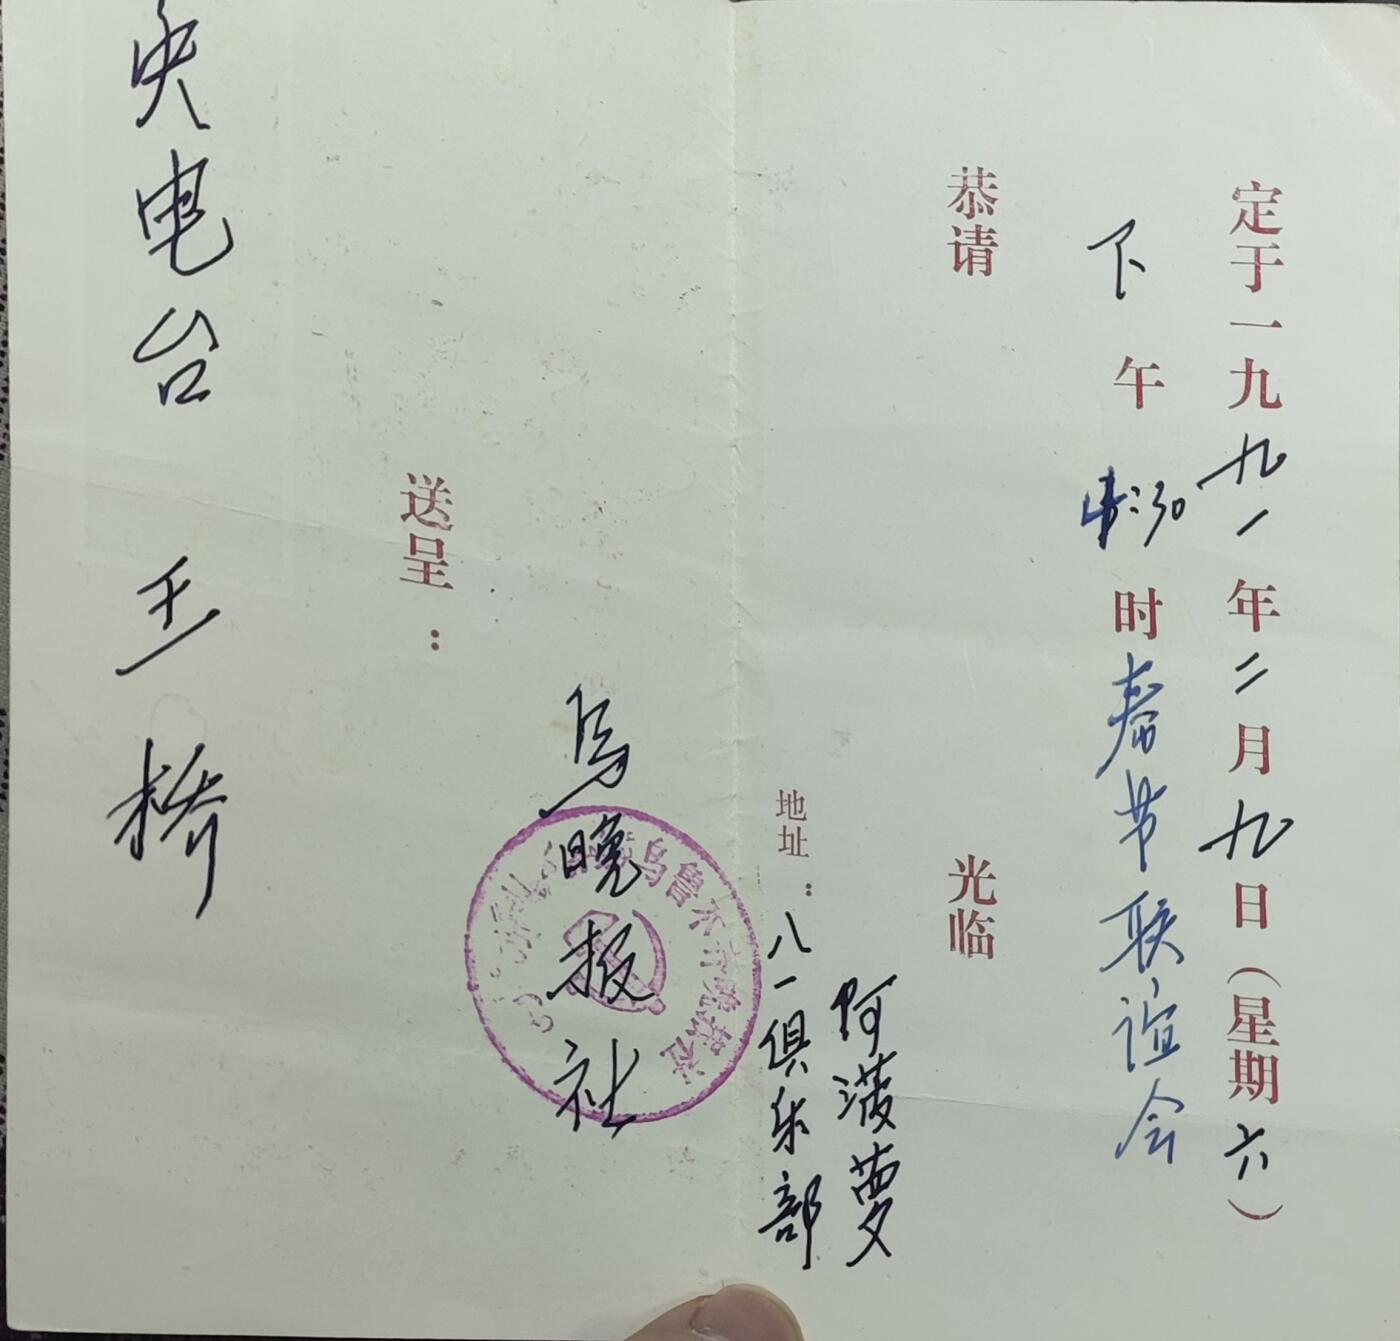 定于一九九一年二月九日（星期六）
下午4:30时春节联谊会
恭请 光临
阿菠萝
地址：八一俱乐部
乌晚报社
乌鲁木齐晚报社
送呈：
央电台 王桥